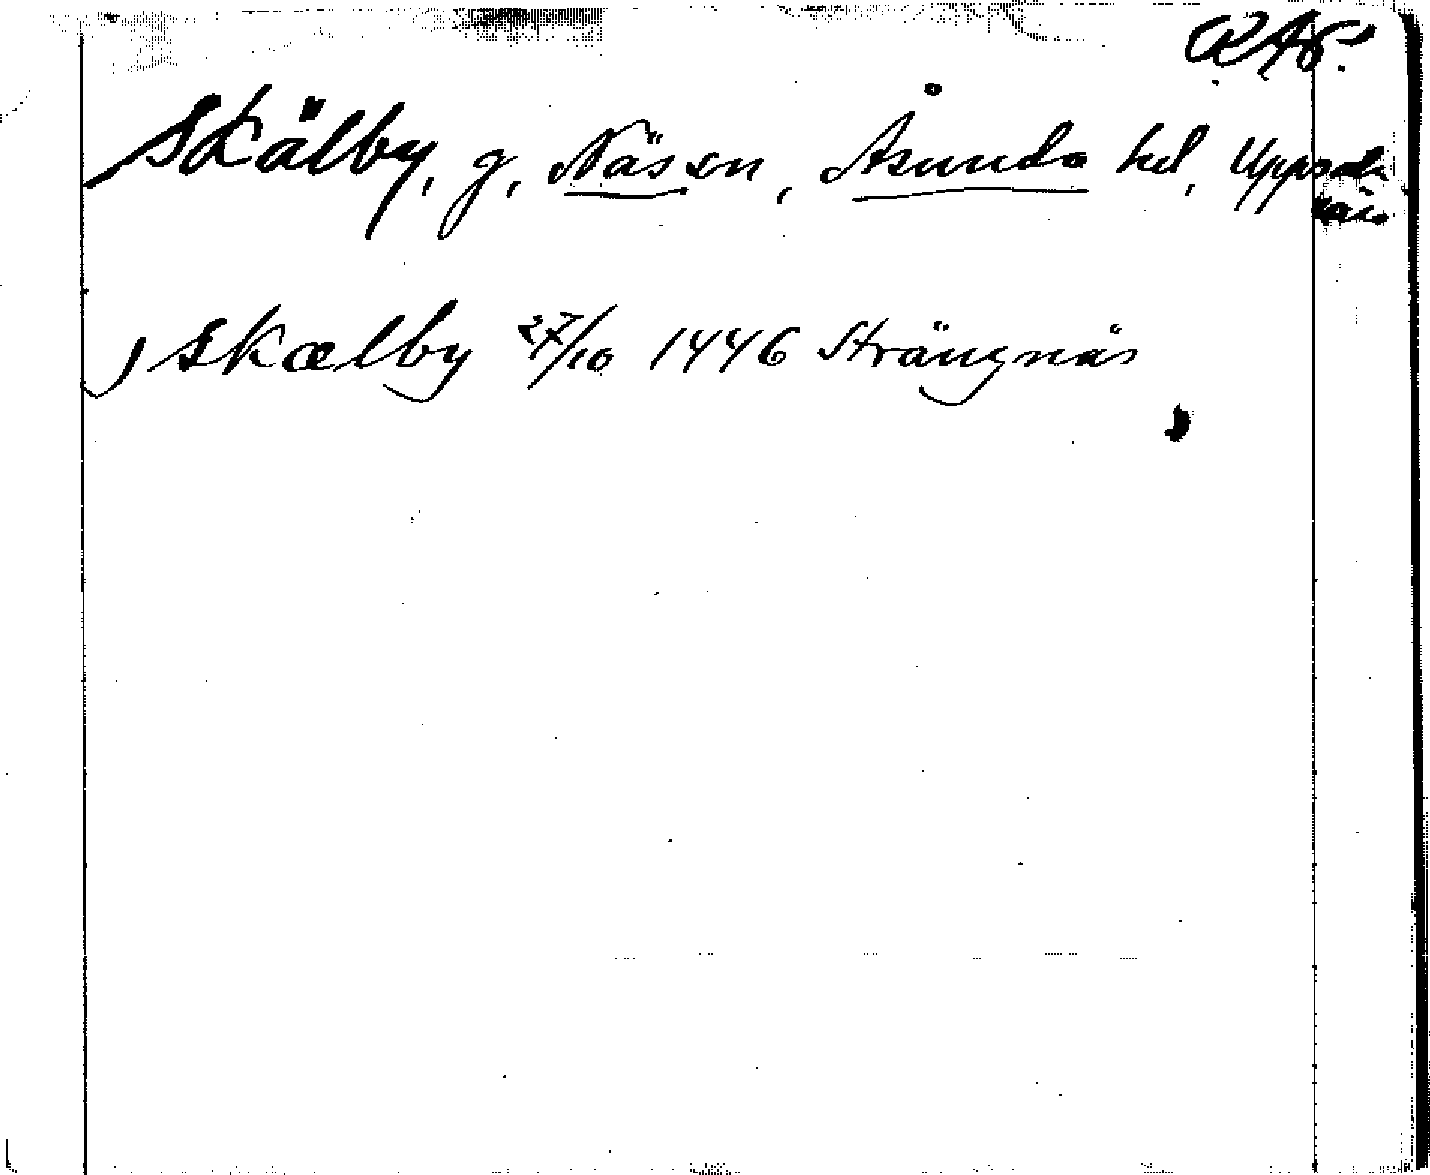 RAp.
Skälby, g, Näs sn, Åsunda hd, Uppsala
län
j skælby 27/10 1446 Strängnäs